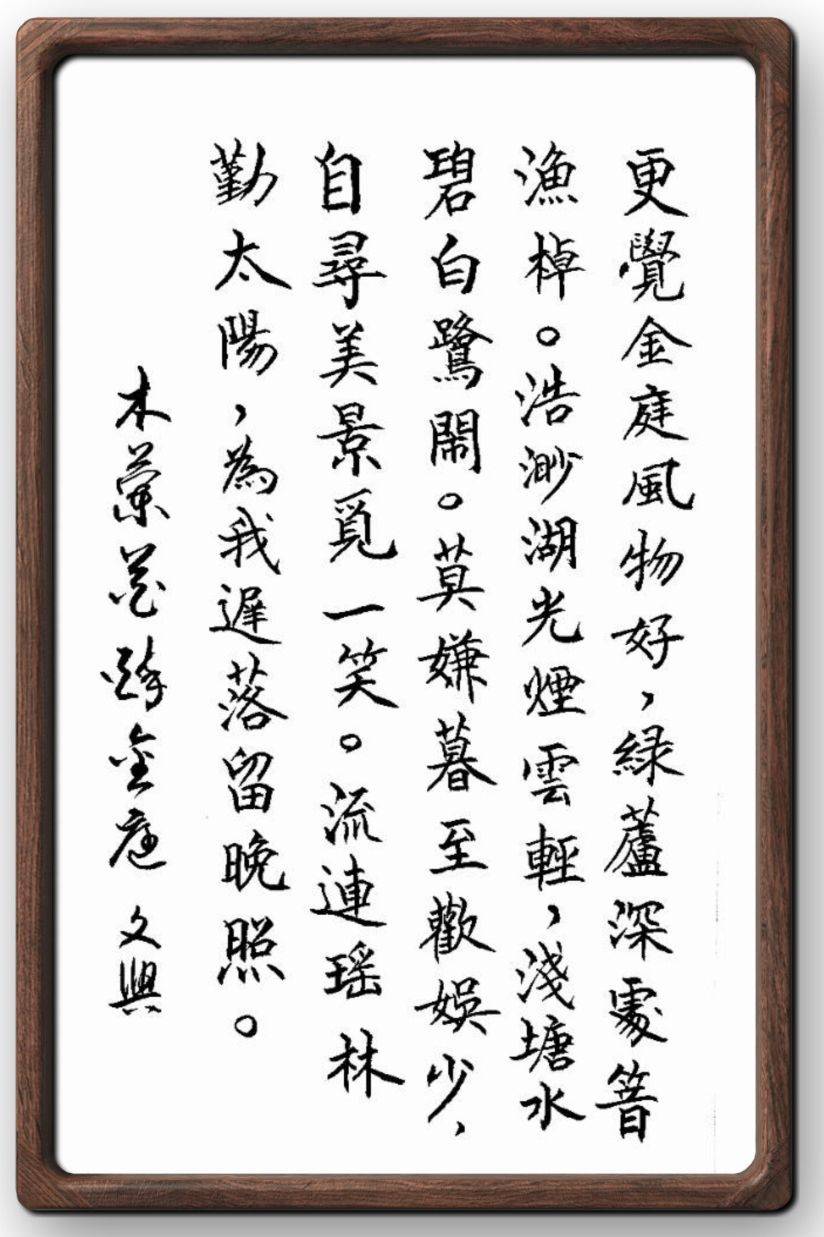 更覺金庭風物好，綠蘆深處簪
漁棹。浩渺湖光煙雲輕，淺塘水
碧白鷺鬧。莫嫌暮至歡娛少，
自尋美景覓一笑。流連瑶林
勤太陽，為我遲落留晚照。
木蘭花 金庭 文興